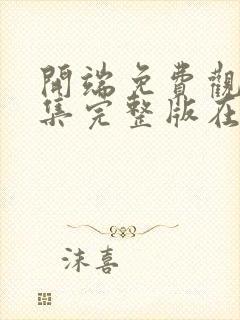 開端免費觀
集完整版在
沫喜